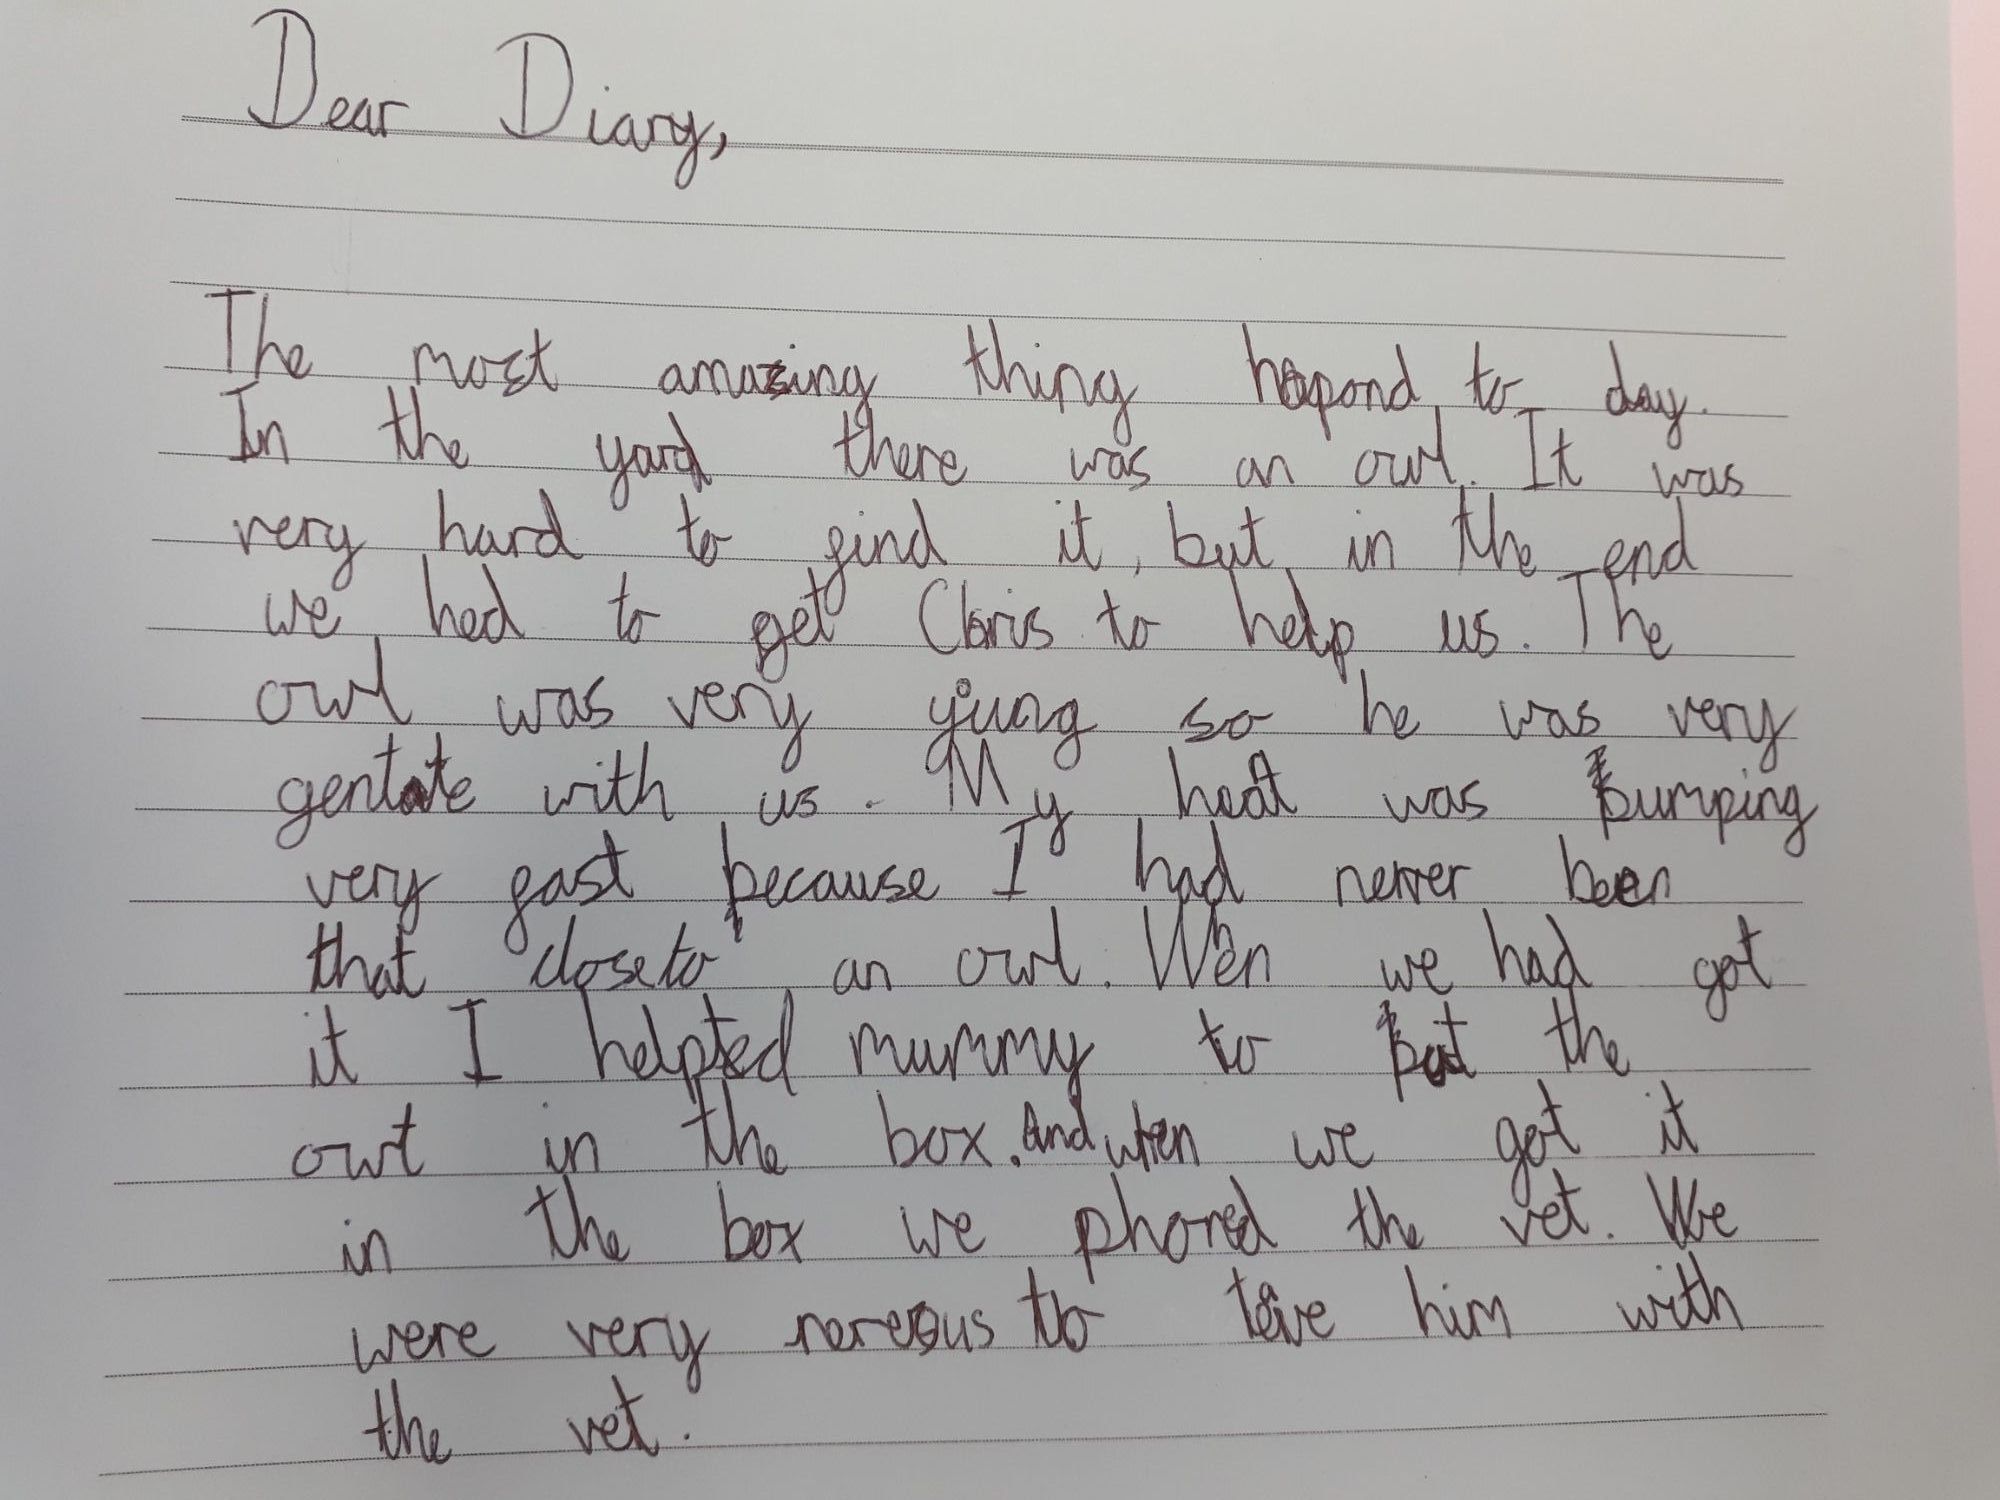 Dear Diary,
The most amazing thing hapond to day.
In the yard there was an owl. It was
very hard to find it, but in the end
we had to get Chris to help us. The
owl was very young so he was very
gentate with us. My heat was pumping
very fast because I had never been
that close to an owl. When we had got
it I helpted mummy to put the
owt in the box. And when we got it
in the box we phoned the vet. We
were very nereous to leive him with
the vet.